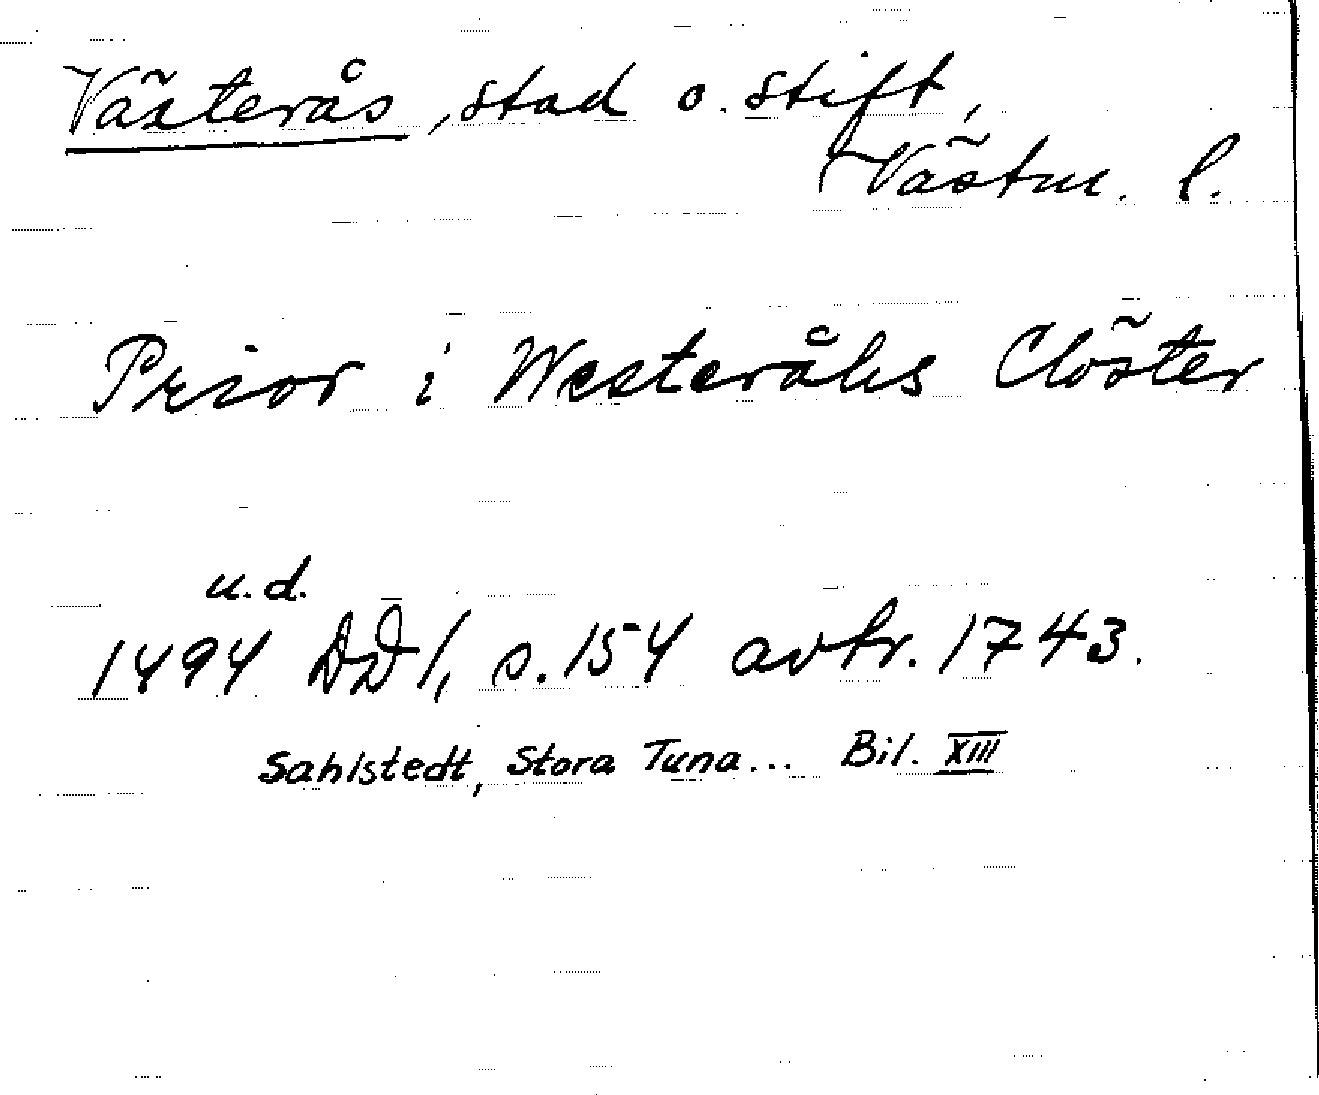 Västerås, stad o. stift,
Västm. l.
Prior i Westeråhs Clöster
u.d.
1494 DD 1, s. 154 avtr. 1743.
Sahlstedt, Stora Tuna... Bil. XIII